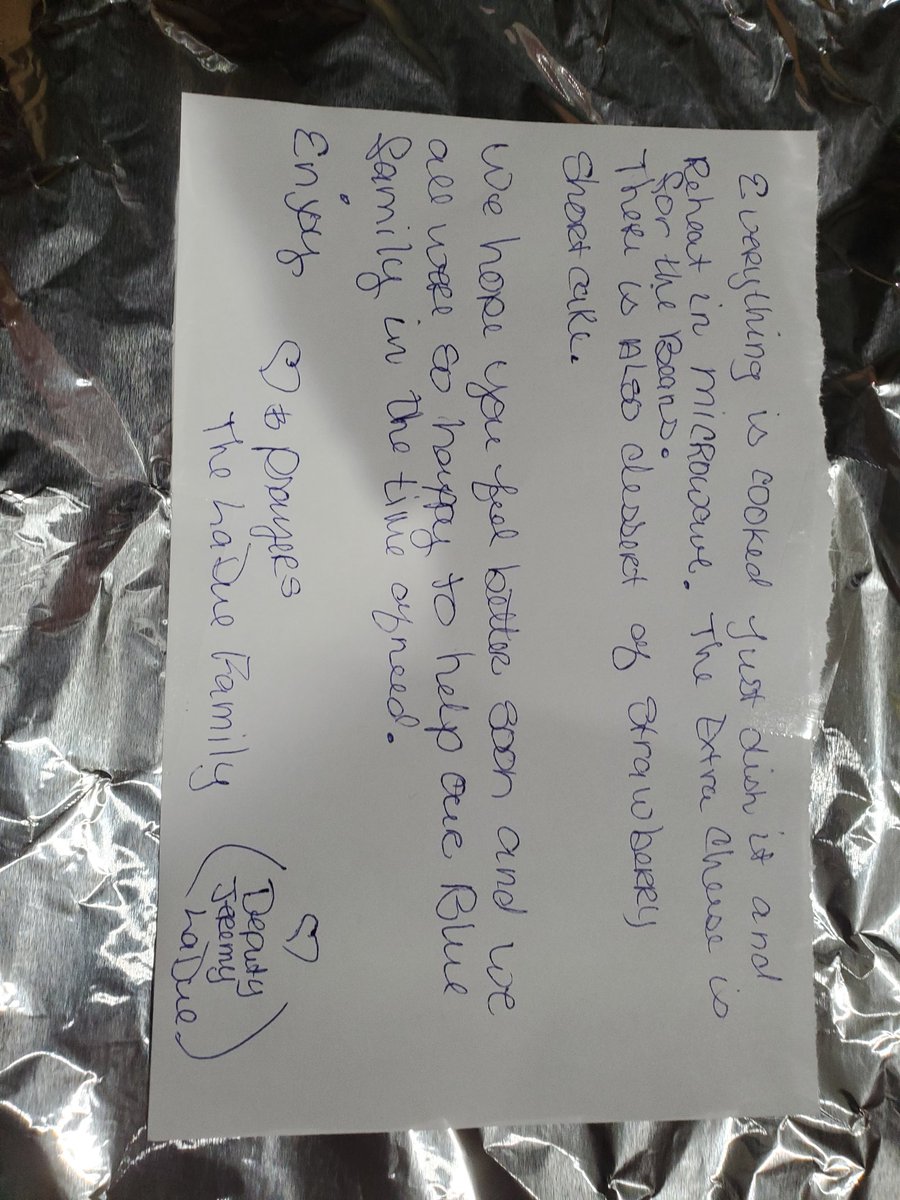 Everything is cooked just dish it and
Reheat in microwave. The Extra Cheese is
for the Beans.
There is Also dessert of strawberry
Shortcake.
We hope you feel better soon and we
all were so happy to help our Blue
family in the time of need.
Enjoy
♡ & Prayers
The LaDue Family
♡
(Deputy
Jeremy
LaDue)